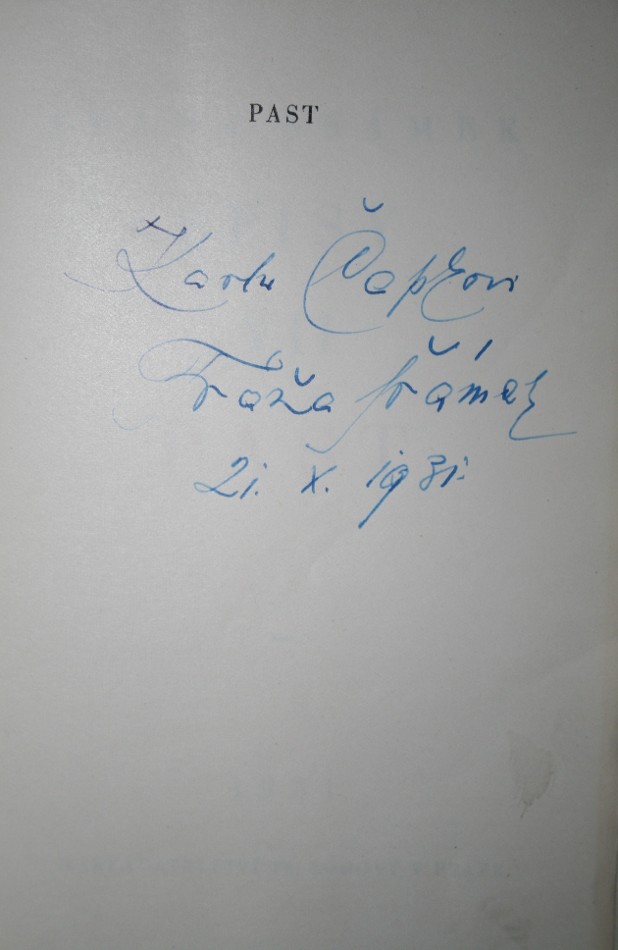 PAST
Karlu Čapkovi
Fráňa Šrámek
21. X. 1931.